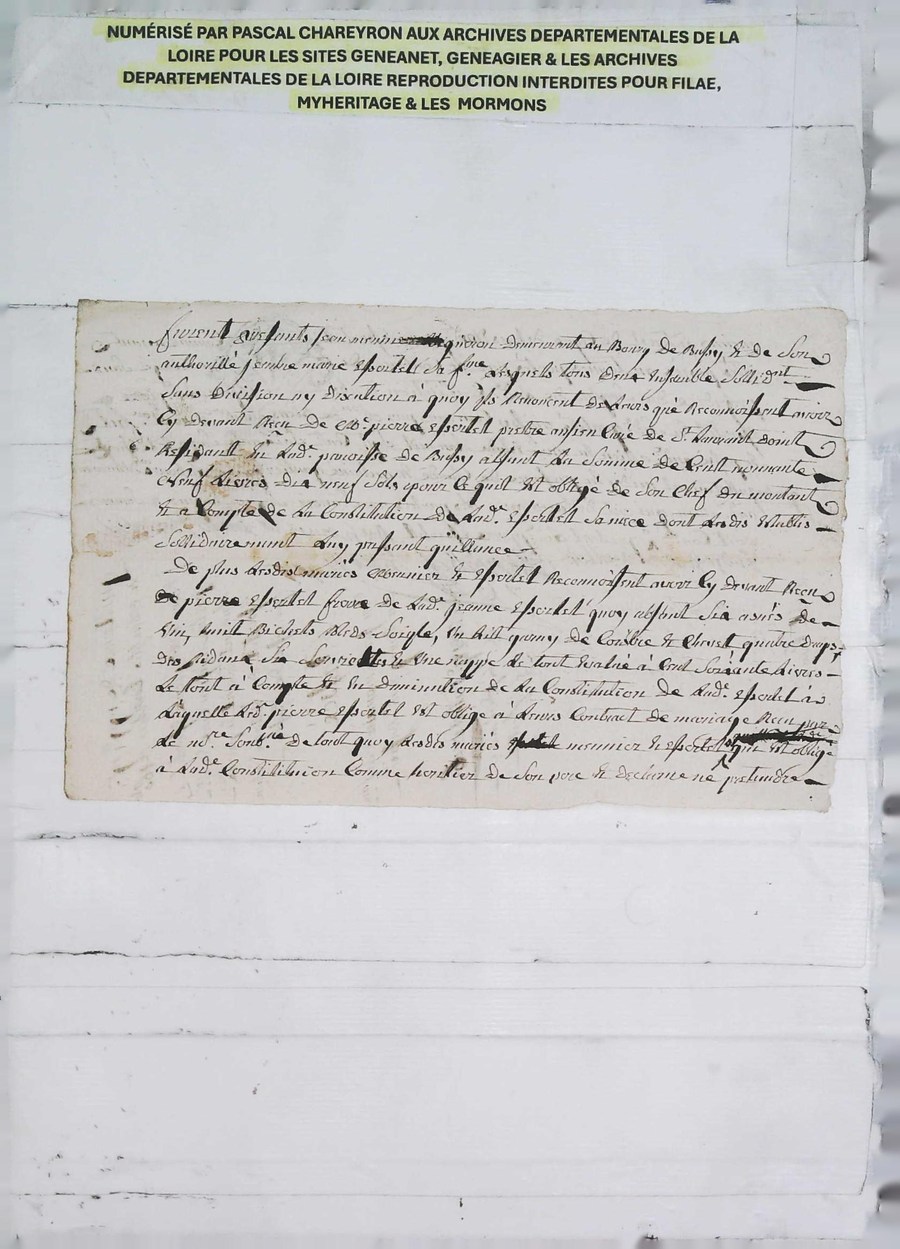 NUMÉRISÉ PAR PASCAL CHAREYRON AUX ARCHIVES DEPARTEMENTALES DE LA
LOIRE POUR LES SITES GENEANET, GENEAGIER & LES ARCHIVES
DEPARTEMENTALES DE LA LOIRE REPRODUCTION INTERDITES POUR FILAE,
MYHERITAGE & LES MORMONS
furent presants jean meunier vigneron demeurant au Bourg de Bussy & de Son
authorillé jeanne marie espertel Sa fme Lesquels tous deux ensemble Sollidnt
Sans Division ny Discution à quoy ils Renoncent de Leurs gré Reconnoissent avoir
Cy devant Reçu de Mr pierre espertel prestre ansien Curé de St
Residant en Lad. paroisse de Bussy absant La Somme de Cent nonnante
Neuf Livres dix neuf Sols pour Ce quil est obligé de Son Chef du montant
& a Compte de La Constitution de Lad. espertel Sa niece dont Lesdis
Sollidairement Luy passant quillance
De plus Lesdis mariés meunier & espertel Reconnoissent avoir Cy devant Reçu
De pierre espertel frere de Lad. jeanne espertel quoy absant Six anés de
Vin, huit Bichets Bleds Soigle, un Lit garny de & quatre draps
Des Six & une nappe Le tout évalué à Cent Soixante Livres
Le tout à Compte & en diminution de La Constitution de Lad. espertel à
Laquelle Led. pierre espertel est obligé à Leurs Contract de mariage Reçu par
Le nre De tout quoy Lesdis mariés meunier & espertel qui est obligé
à Lad. Constitution Comme heritier de Son pere & declarne ne pretendre